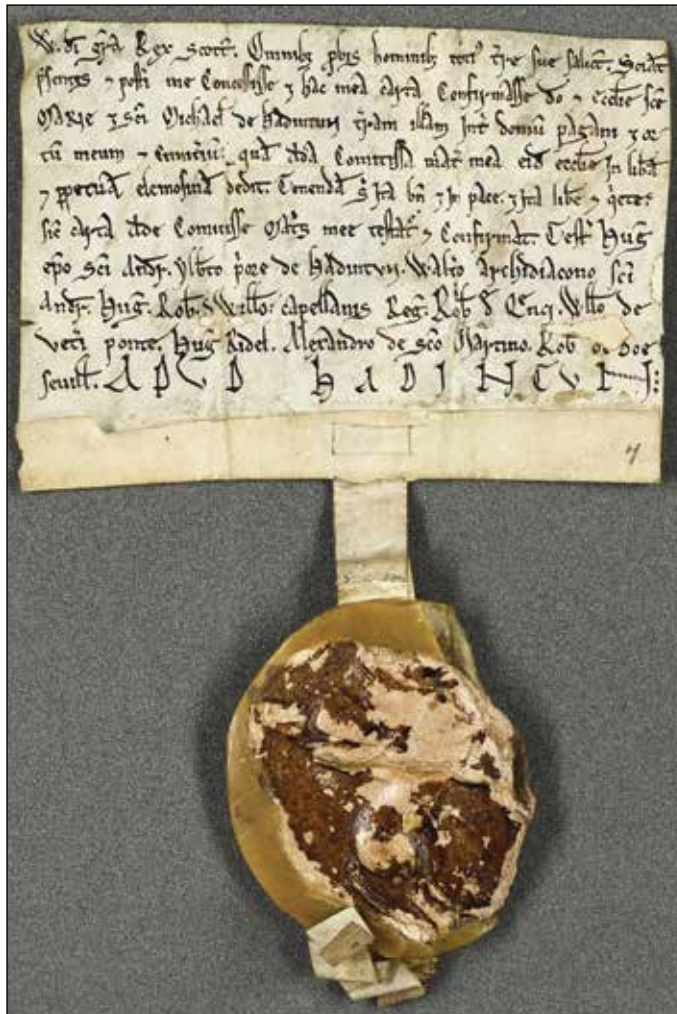 W. di gra Rex Scott. Omnibz pbis hominibz toci' tre sue salut. Sciat
psentes ⁊ post me Concessisse ⁊ hac mea carta Confirmasse do ⁊ ecclie sce
Marie ⁊ sci Michael de hadintun tram illam int domu pagani ⁊ or
tu meum ⁊ qua Ada Comitissa mat mea eid ecclie in liba
⁊ ppetua elemosina dedit. Tenenda ita bn ⁊ in pace. ⁊ ita libe ⁊ qete.
sic carta Ade Comitisse Matis mee testat ⁊ Confirmat. Test hug
epo sci Andr. pore de hadintun. Walto Archidiacono sci
Andr. hug. Rob. Willo. capellanis Reg. Rob d Willo de
veti ponte. hug Ridel. Alexandro de sco Martino. Rob de
seuill. APVD HADINTVN:
7